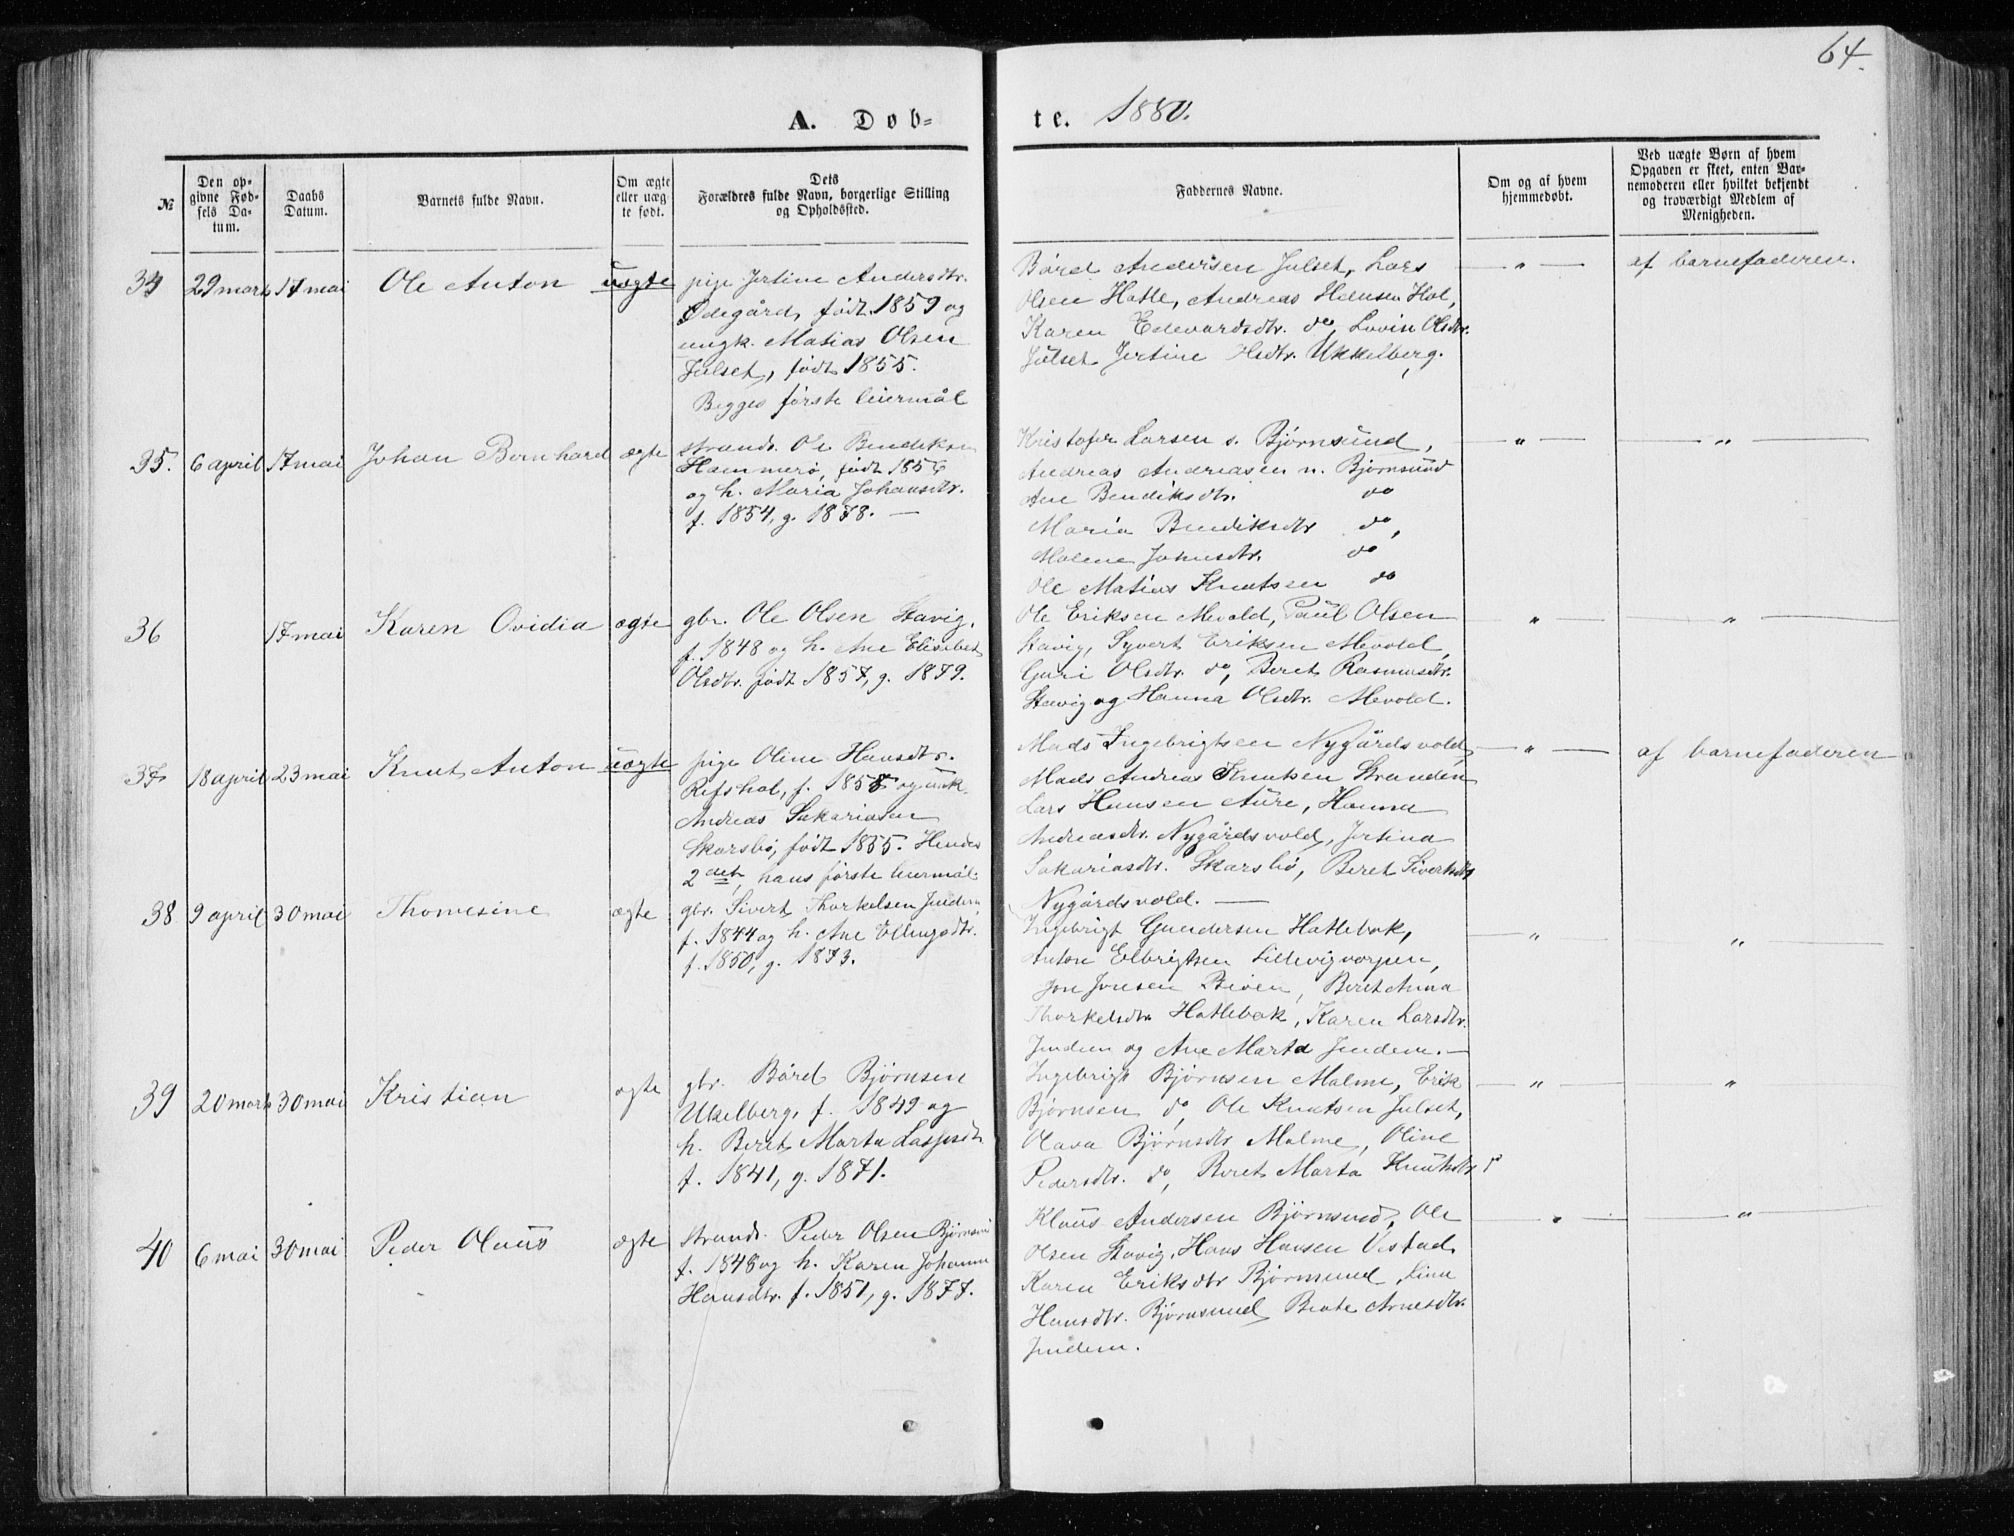 64.
A. Døb-
te. 1880.
№
Den op-
givne Fød-
sels Da-
tum.
Daabs
Datum.
Barnets fulde Navn.
Om ægte
eller uæg
te født.
Dets
Forældres fulde Navn, borgerlige Stilling
og Opholdssted.
Faddernes Navne.
Om og af hvem
hjemmedøbt.
Ved uægte Børn af hvem
Opgaven er skeet, enten Bar-
nemoderen eller hvilket bekjendt
og troværdigt Medlem af
Menigheden.
34 29 marts 17 mai Ole Anton uægte
pige Jertine Andersdtr.
Ødegård, født 1859 og
ungk. Matias Olsen
Julset, født 1855.
Begges første leiermål
Bård Andersen Julset, Lars
Olsen Hatle, Andreas Hansen Hol,
Karen Edevardsdtr. do, Lovise Olsdtr.
Julset Jertine Hsdtr. Ukkelberg.
— " — af barnefaderen.
35. 6 april 17 mai Johan Bernhard ægte
strands. Ole Bendiksen
Hammerø, født 185
og h. Maria Johansdtr.
f. 1854, g. 1878. —
Kristofer Larsen s. Bjørnsund,
Andreas Andreasen n. Bjørnsund
Ane Bendiksdtr. do
Maria Bendiksdtr do,
Malene Johnsdtr. do
Ole Matias Knutsen do
— " — — " —
36 17 mai Karen Ovidia ægte
gbr. Ole Olsen Stavig,
f. 1848 og h. Ane Elisabet
Olsdtr. født 1857, g. 1879.
Ole Eriksen Mevold, Paul Olsen
Stavig, Syvert Eriksen Mevold,
Guri Olsdtr. do, Beret Rasmusdtr.
Stavig og Hanna Olsdtr. Mevold.
— " — — " —
37 18 april 23 mai Knut Anton uægte
pige Oline Hansdtr.
Refshol, f. 1858 og unk.
Andreas Sakariasen
Skarsbø, født 1855. Hendes
2det, hans første leiermål.
Mads Ingebrigtsen Nygårdsvold,
Mads Andreas Knutsen Stranden
Lars Hansen Aure, Hanna
Andreasdtr. Nygårdsvold, Jertina
Sakariasdtr. Skarsbø, Beret Sivertsdtr
Nygårdsvold. —
— " — af barnefaderen
38 9 april 30 mai Thomesine ægte
gbr. Sivert Thorkelsen Jendem,
f. 1844 og h. Ane Ellingsdtr.
f. 1850, g. 1873.
Ingebrigt Gundersen Hatlebak,
Anton Elbrigtsen Sillevigvarpen,
Jon Jonsen Bøen, Beret Anna
Thorkelsdtr Hatlebak, Karen Larsdtr.
Jendem og Ane Marta Jendem. —
— " — "
39 20 marts 30 mai Kristian ægte
gbr. Bård Bjørnsen
Ukelberg, f. 1849 og
h. Beret Marta Lassesdtr
f. 1841, g. 1871.
Ingebrigt Bjørnsen Malme, Erik
Bjørnsen do, Ole Knutsen Julset,
Olava Bjørnsdtr Malme, Oline
Pedersdtr. do, Beret Marta Knutsdtr do
— " — "
40 6 mai 30 mai Peder Olaus ægte
strands. Peder Olsen Bjørnsund
f. 1848 og h. Karen Johanne
Hansdtr. f. 1851, g. 1877.
Klaus Andersen Bjørnsund, Ole
Olsen Stavig, Hans Hansen Vestad,
Karen Eriksdtr Bjørnsund, Lina
Hansdtr. Bjørnsund, Beate Arnesdtr.
Jendem.
— " — — " —